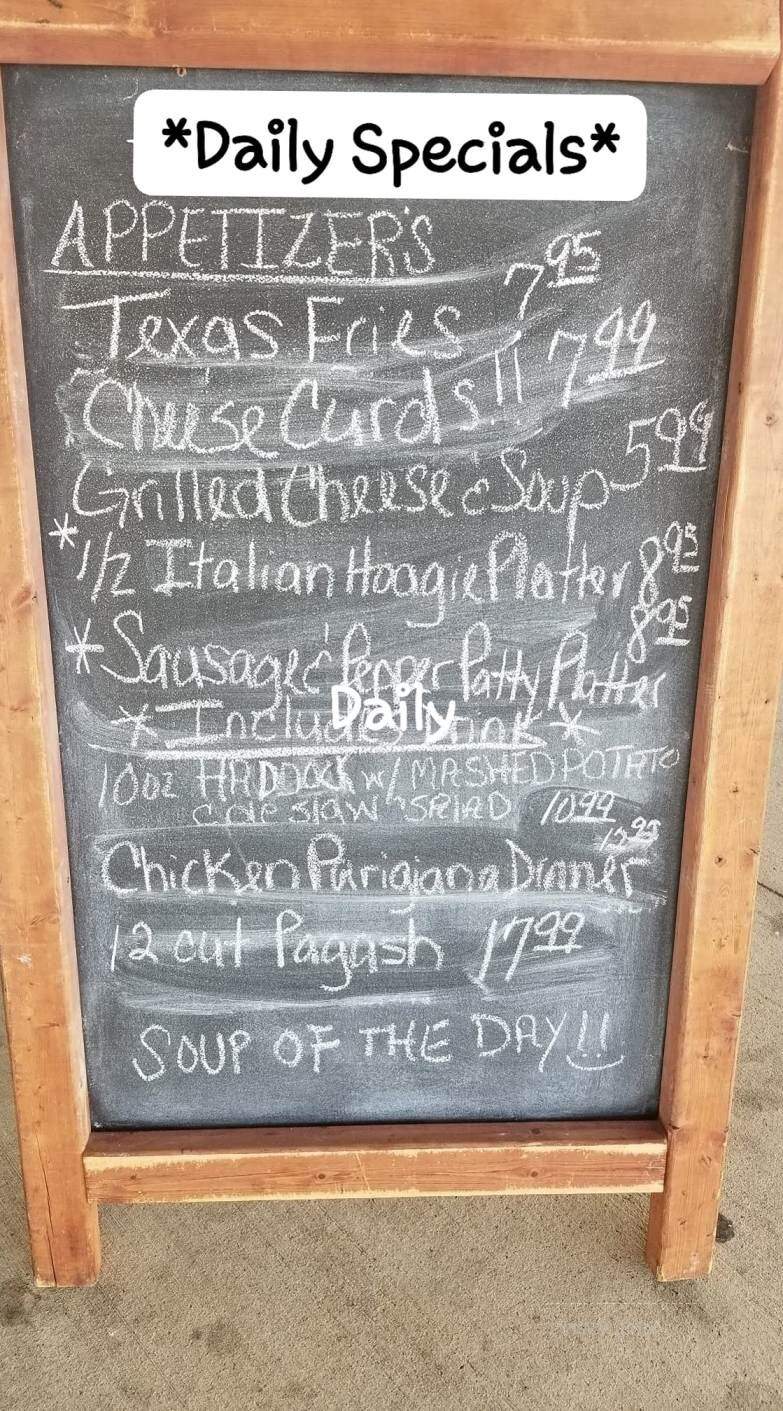 *Daily Specials*
APPETIZER'S
Texas Fries 7 95
Cheese Curds!! 7 99
Grilled Cheese & Soup 5 99
*1/2 Italian Hoagie Platter 8 95
*Sausage & Pepper Patty Platter 8 95
*Includes Drink*
Daily
10oz HADDOCK w/ MASHED POTATO
COLE SLAW SALAD 10 99
Chicken Parigiana Dinner 12 95
12 cut Pagash 17 99
SOUP OF THE DAY!!